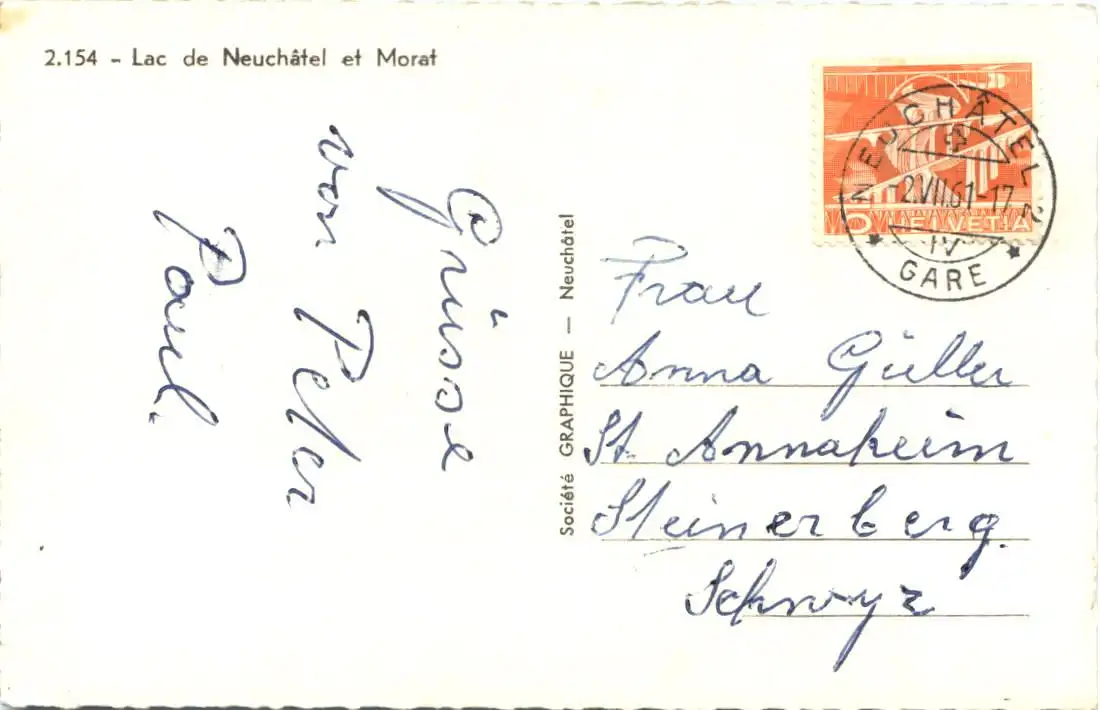 2.154 - Lac de Neuchâtel et Morat
Grüsse
von Peter
Paul.
Société GRAPHIQUE — Neuchâtel
5 HELVETIA
NEUCHÂTEL 2
-2.VII.61-17
IV
GARE
Frau
Anna Güller
St. Annaheim
Steinerberg.
Schwyz